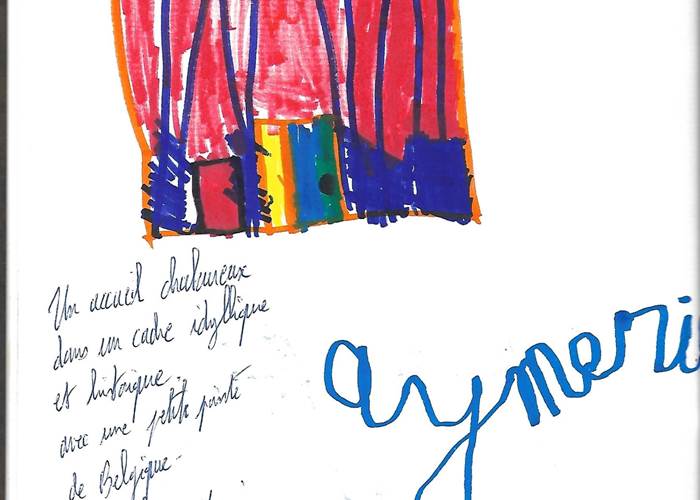 Un accueil chaleureux
dans un cadre idyllique
et historique
avec une petite pointe
de Belgique -
aymeri